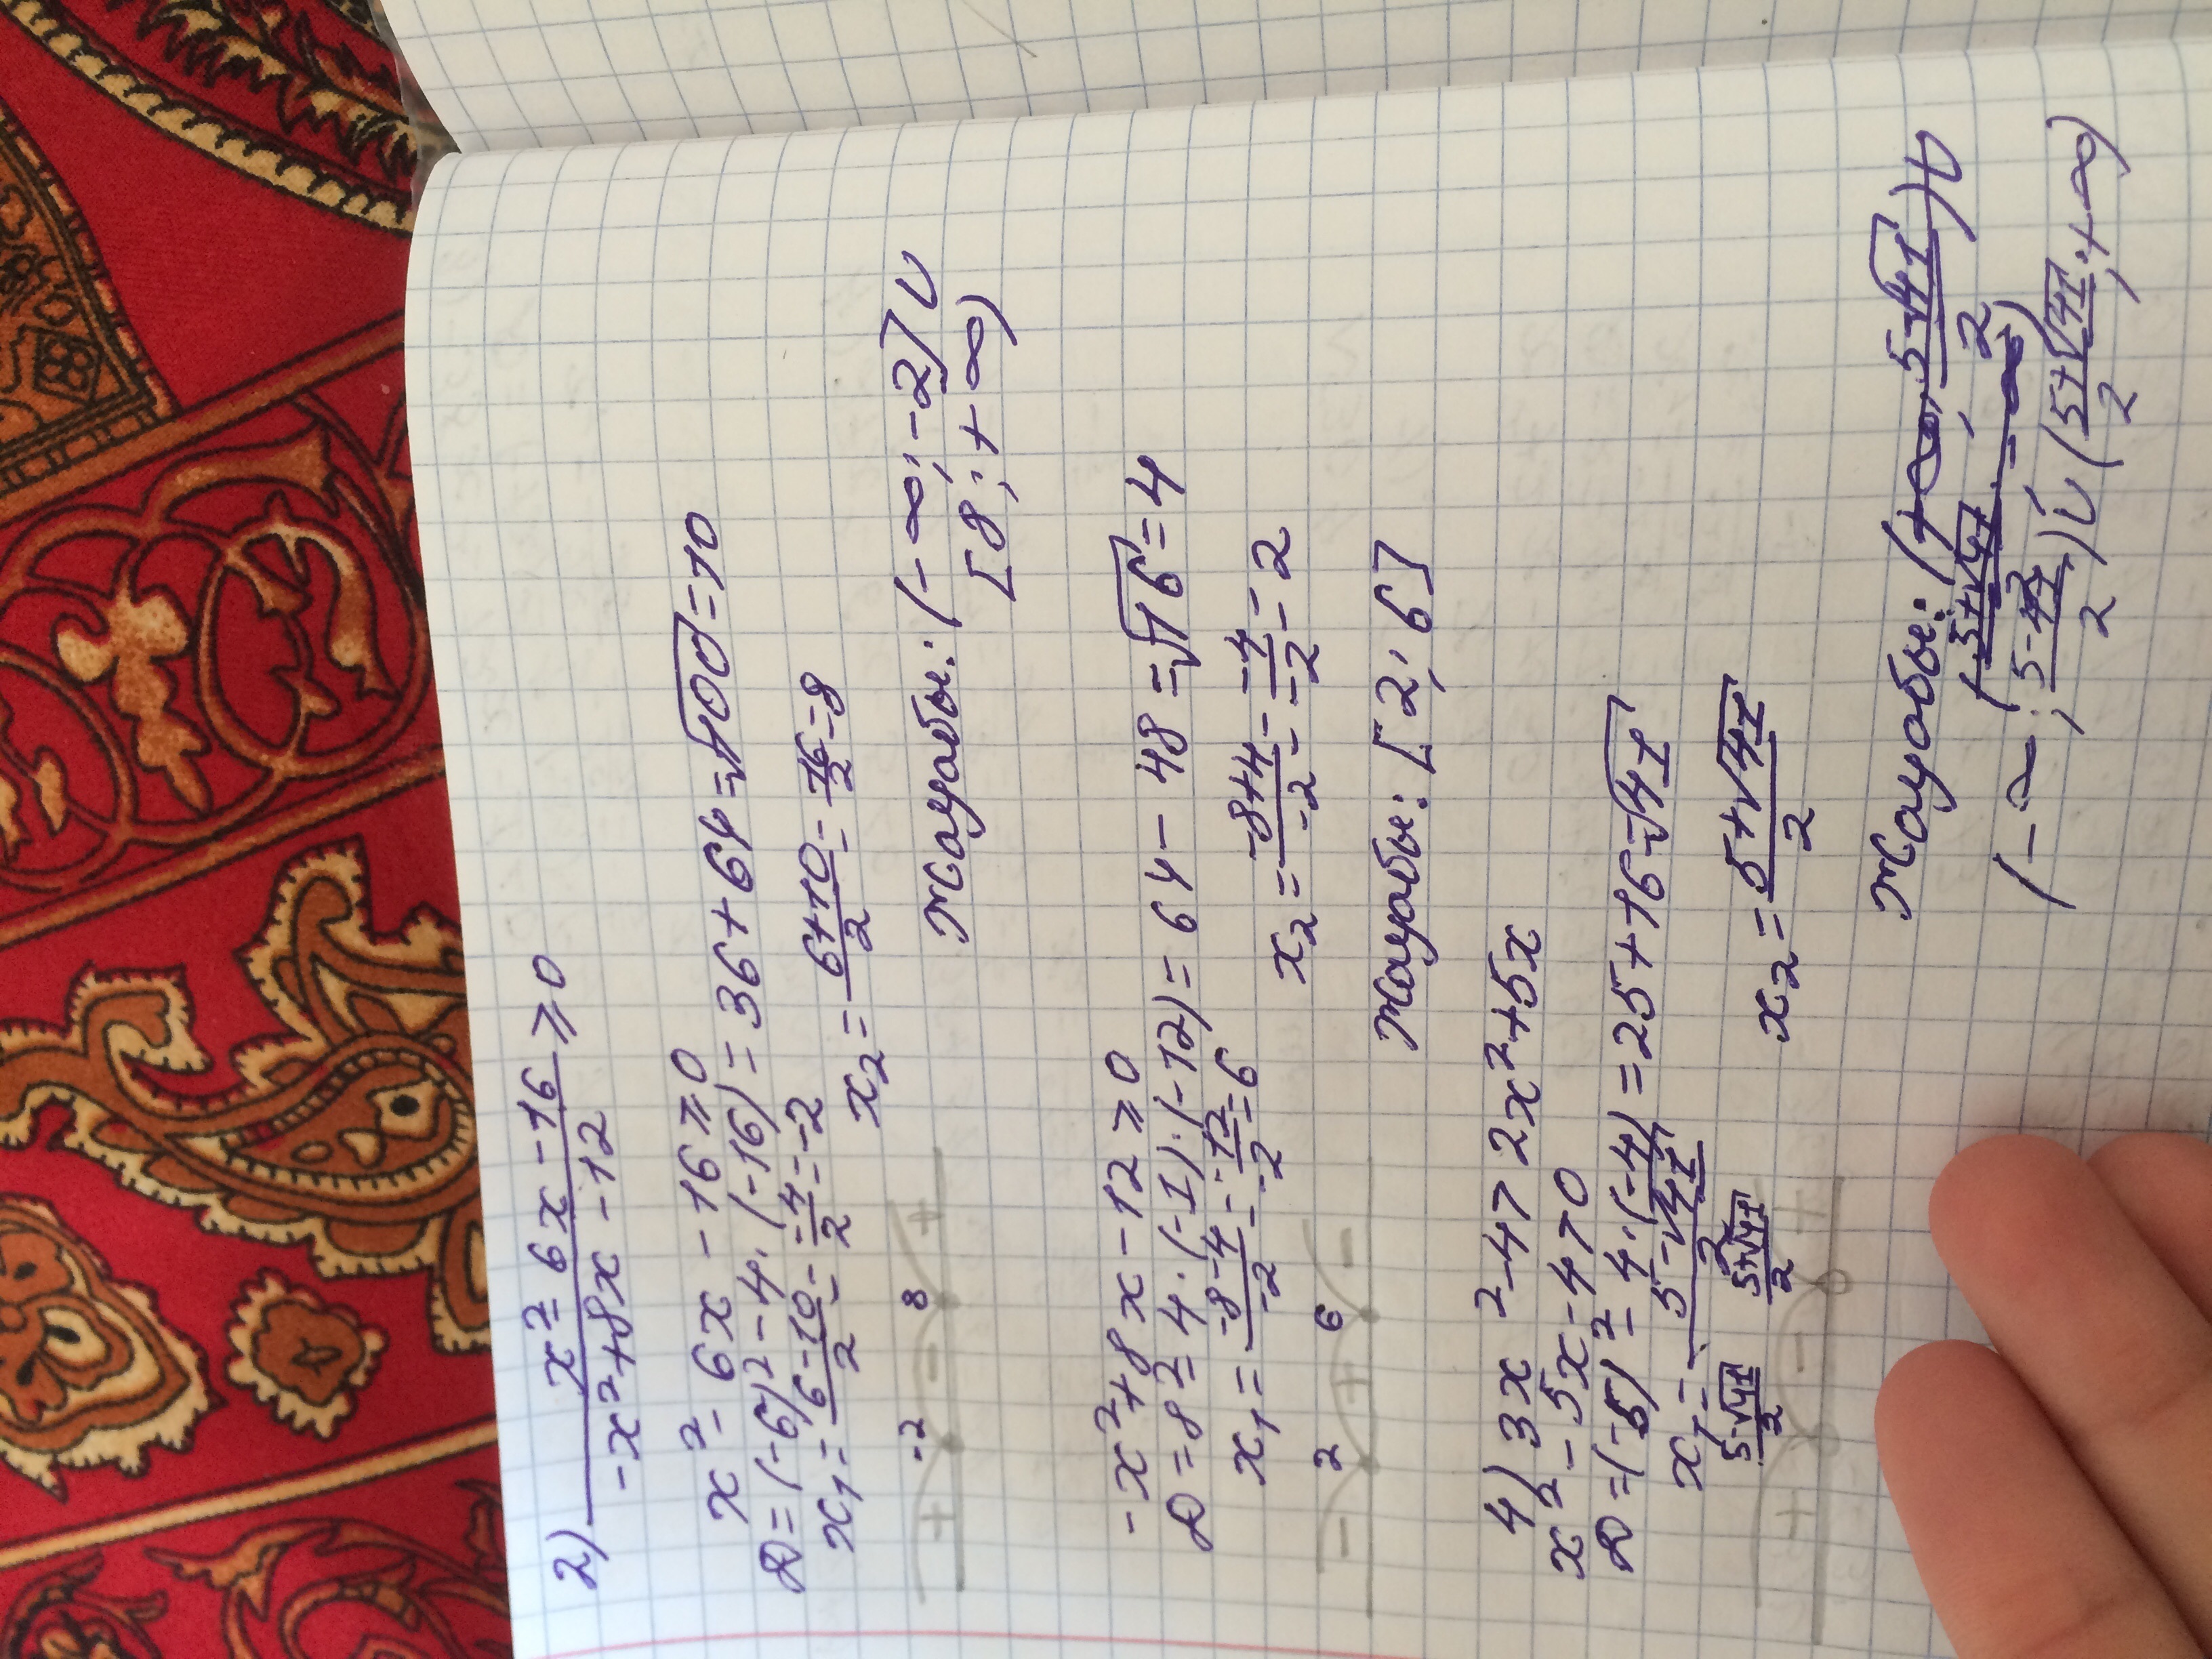 2) x² - 6x - 16 / -x² + 8x - 12 ≥ 0
x² - 6x - 16 ≥ 0
D = (-6)² - 4·(-16) = 36 + 64 = √100 = 10
x₁ = 6-10/2 = -4/2 = -2
x₂ = 6+10/2 = 16/2 = 8
-2 8
+ - +
Жауабы: (-∞; -2] U
[8; +∞)
-x² + 8x - 12 ≥ 0
D = 8² - 4·(-1)·(-12) = 64 - 48 = √16 = 4
x₁ = -8-4/-2 = -12/-2 = 6
x₂ = -8+4/-2 = -4/-2 = 2
2 6
- + -
Жауабы: [2; 6]
4) 3x² - 4 > 2x² + 5x
x² - 5x - 4 > 0
D = (-5)² - 4·(-4) = 25 + 16 = √41
x₁ = 5-√41/2
x₂ = 5+√41/2
5-√41/2 5+√41/2
+ - +
Жауабы: (+∞; 5-√41/2) U
(5+√41/2; -∞)
(-∞; 5-/2) U (5+√41/2; +∞)